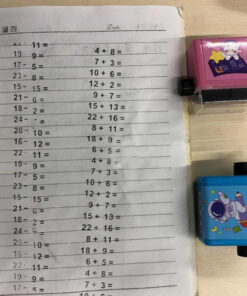 Date:
11 =
19 - 9 = 4 + 8 =
17 - 5 = 7 + 3 =
23 - 8 = 10 + 6 =
15 - 15 = 12 + 2 =
21 - 6 = 9 + 7 =
18 - 2 = 15 + 13 =
24 - 22 + 16 =
20 - 10 = 8 + 11 =
16 - 12 = 18 + 9 =
22 - 11 = 6 + 5 =
19 - 9 = 4 + 8 =
17 - 5 = 7 + 3 =
23 - 8 = 10 + 6 =
15 - 15 = 12 + 2 =
21 - 6 = 9 + 7 =
18 - 2 = 15 + 13 =
24 - 7 = 22 + 16 =
20 - 10 = 8 + 11 =
16 - 12 = 18 + 9 =
22 - 11 = 6 + 5 =
19 - 9 = 4 + 8 =
17 - 7 + 3 =
10 + 6 =